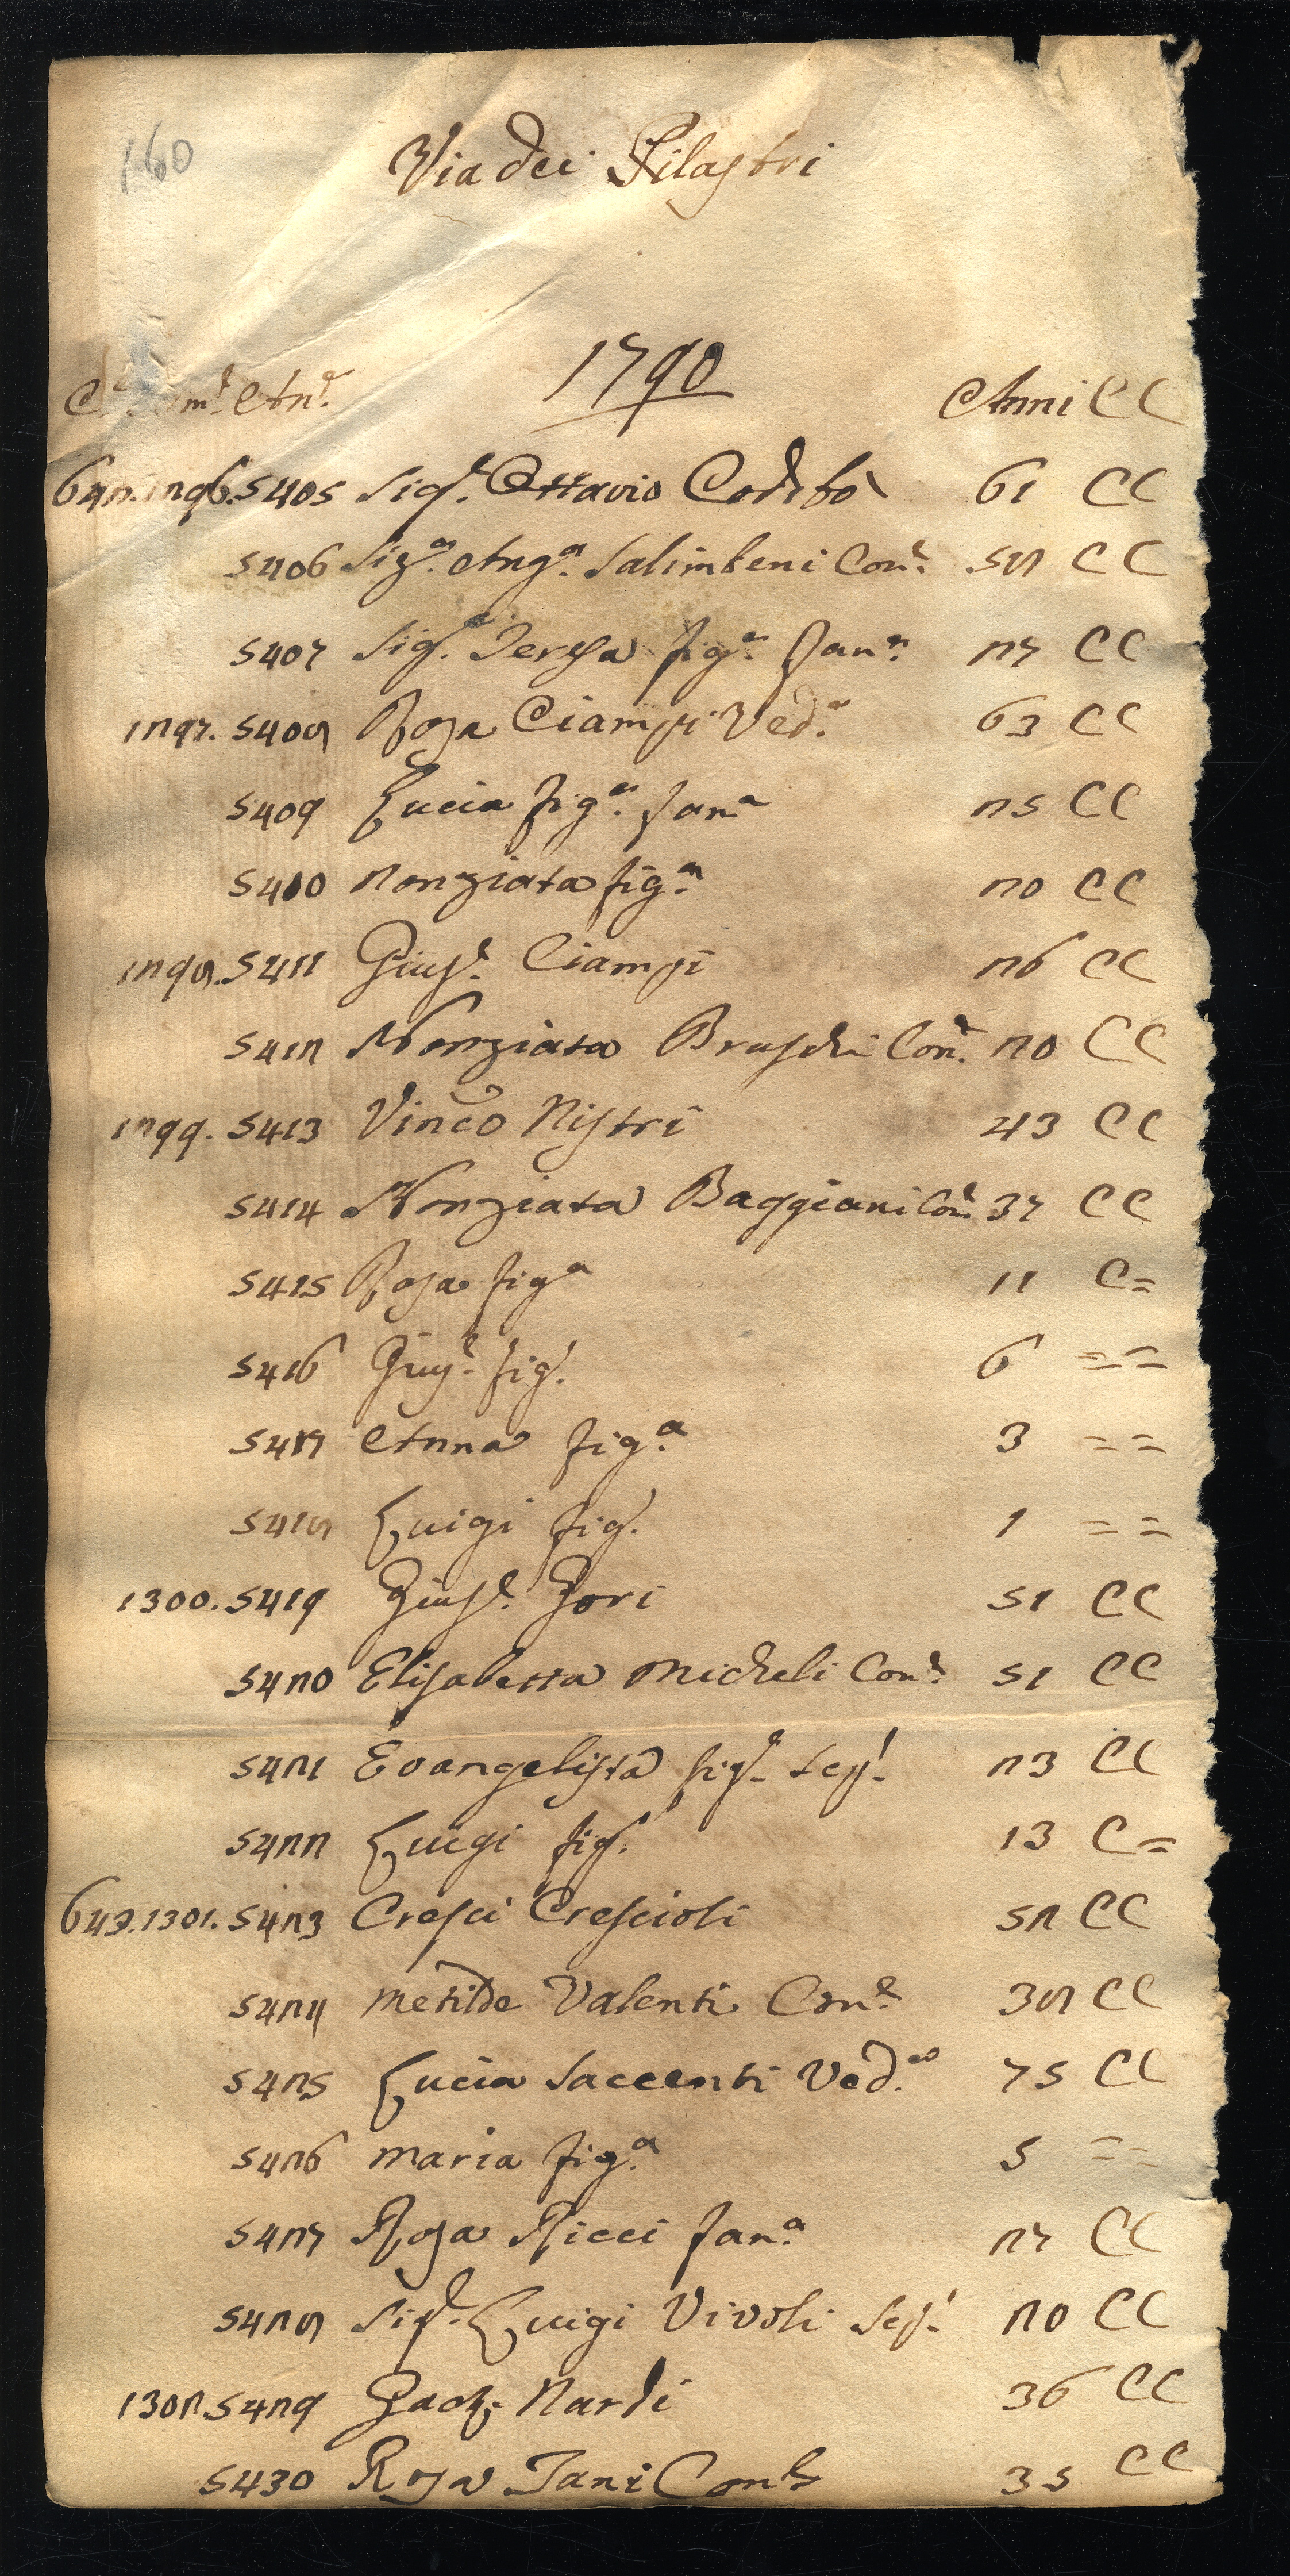 160
Via dei Pilastri
1790
An.e Anni CC
642. 1296. 5405 Sig.e Ottavio Codibò 61 CC
5406 Sig.a Ang.a Salimbeni Con.e 58 CC
5407 Sig.a Teresa fig.a Fan.a 27 CC
1297. 5408 Rosa Ciampi Ved.a 63 CC
5409 Lucia fig.a fan.a 25 CC
5410 Nonziata fig.a 20 CC
1298. 5411 Gius.e Ciampi 26 CC
5412 Nonziata Bruschi Con.e 20 CC
1299. 5413 Vinco Nistri 43 CC
5414 Nonziata Baggiani Con.e 37 CC
5415 Rosa fig.a 11 C=
5416 Gius.e fig. 6 = =
5417 Anna fig.a 3 = =
5418 Luigi fig. 1 = =
1300. 5419 Gius.e Gori 51 CC
5420 Elisabetta Micheli Con.e 51 CC
5421 Evangelista fig.e tess. 23 CC
5422 Luigi fig. 13 C=
643. 1301. 5423 Cresci Crescioli 52 CC
5424 Metilde Valenti Con.e 38 CC
5425 Lucia Saccenti Ved.a 75 CC
5426 Maria fig.a 5 = =
5427 Rosa Ricci fan.a 27 CC
5428 Sig.e Luigi Vivoli 20 CC
1302. 5429 Nardi 36 CC
5430 Rosa Tani Con.e 35 CC